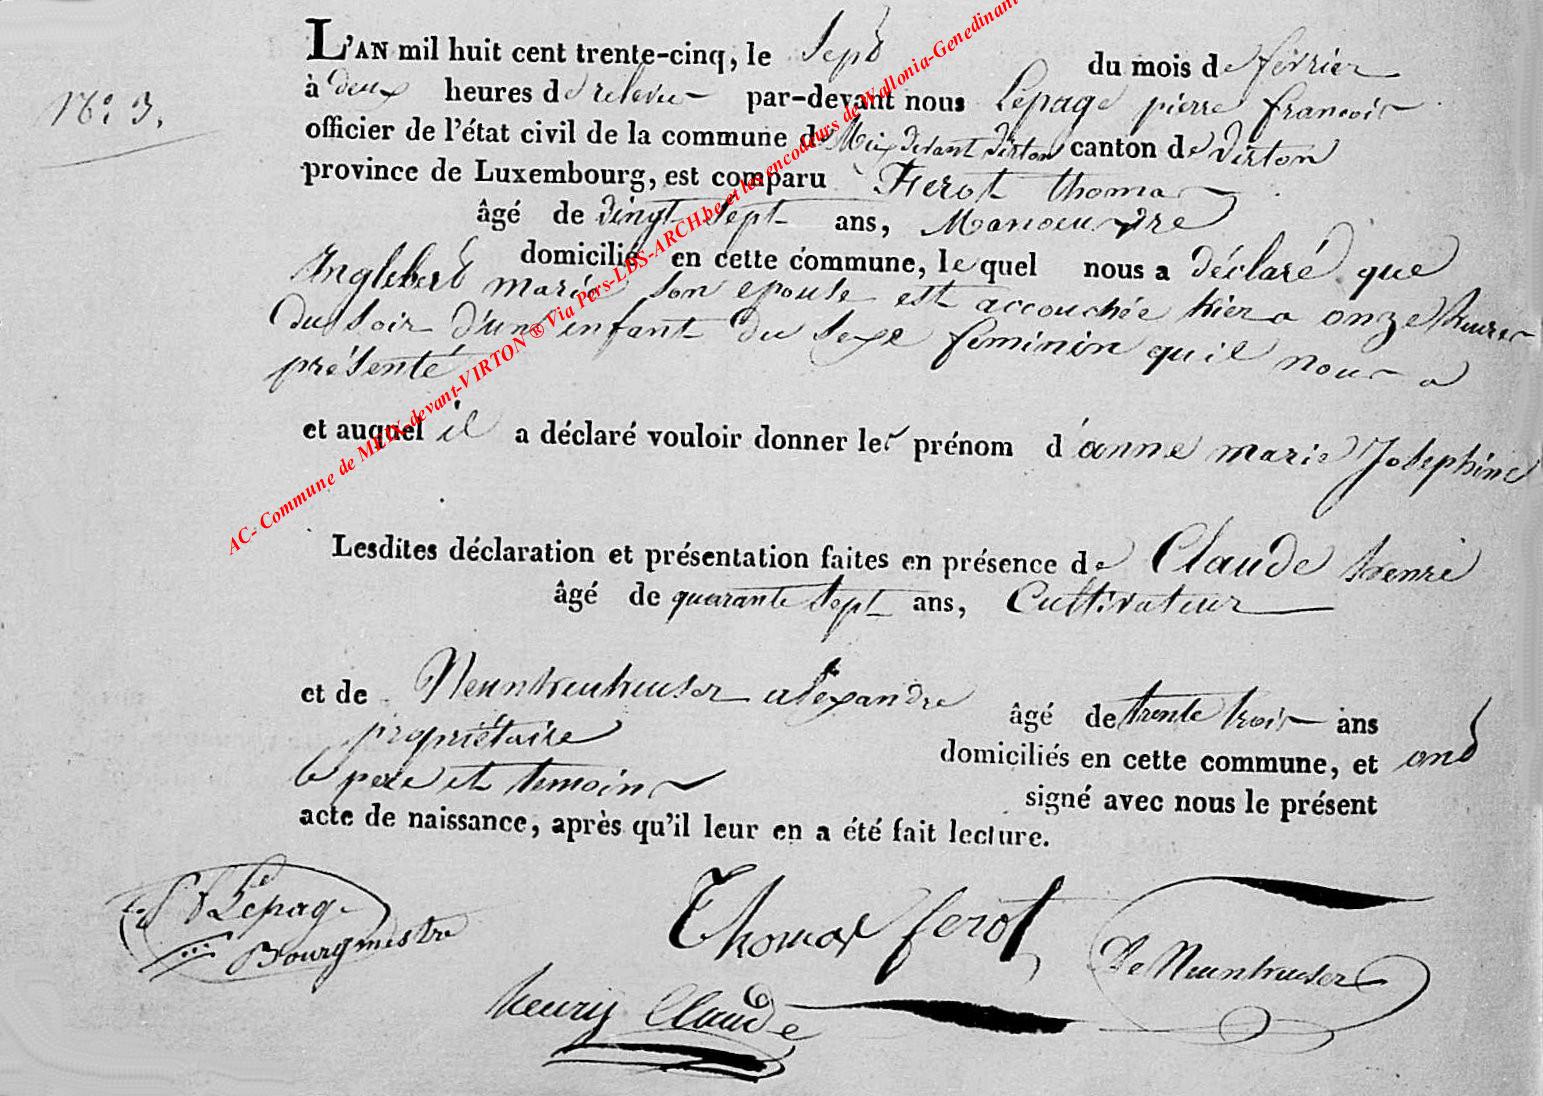 N.o 3.
L'AN mil huit cent trente-cinq, le sept du mois de février
à deux heures de relevée par-devant nous Lepage pierre francois
officier de l'état civil de la commune de Meix devant virton canton de virton
province de Luxembourg, est comparu Ferot thomas
âgé de vingt sept ans, Manoeuvre
domicilié en cette commune, lequel nous a déclaré que
Inglebert marie son epouse est accouchée hier a onze heures
du soir d'un enfant du sexe feminin qu'il nous a
présenté
et auquel il a déclaré vouloir donner les prénom d'anne marie Josephine
Lesdites déclaration et présentation faites en présence de Claude henri
âgé de quarante sept ans, Cultivateur
et de alexandre âgé de trente trois ans
propriétaire domiciliés en cette commune, et ont
le pere et temoins signé avec nous le présent
acte de naissance, après qu'il leur en a été fait lecture.
Lepage
Bourgmestre
Thomas ferot
De
henry Claude
AC- Commune de MEIX-devant-VIRTON ® Via Pers-LDS-ARCH.be et les encodeurs de Wallonia-Genedinant